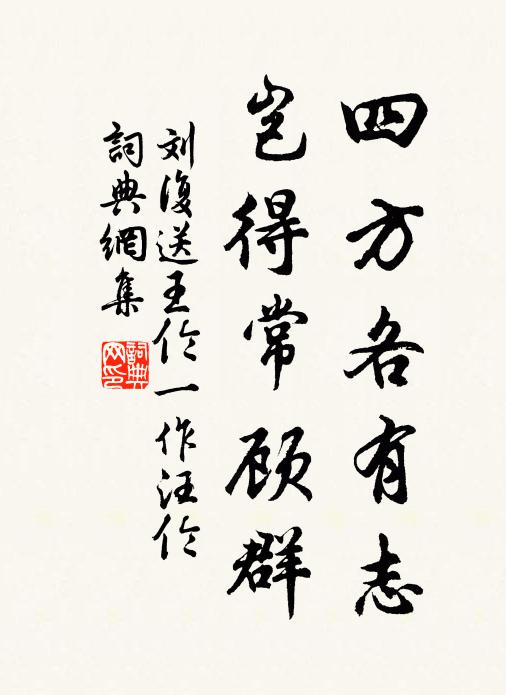 四方各有志
岂得常顾群
刘復送王伦一作汪伦
詞典網集
詞典網印